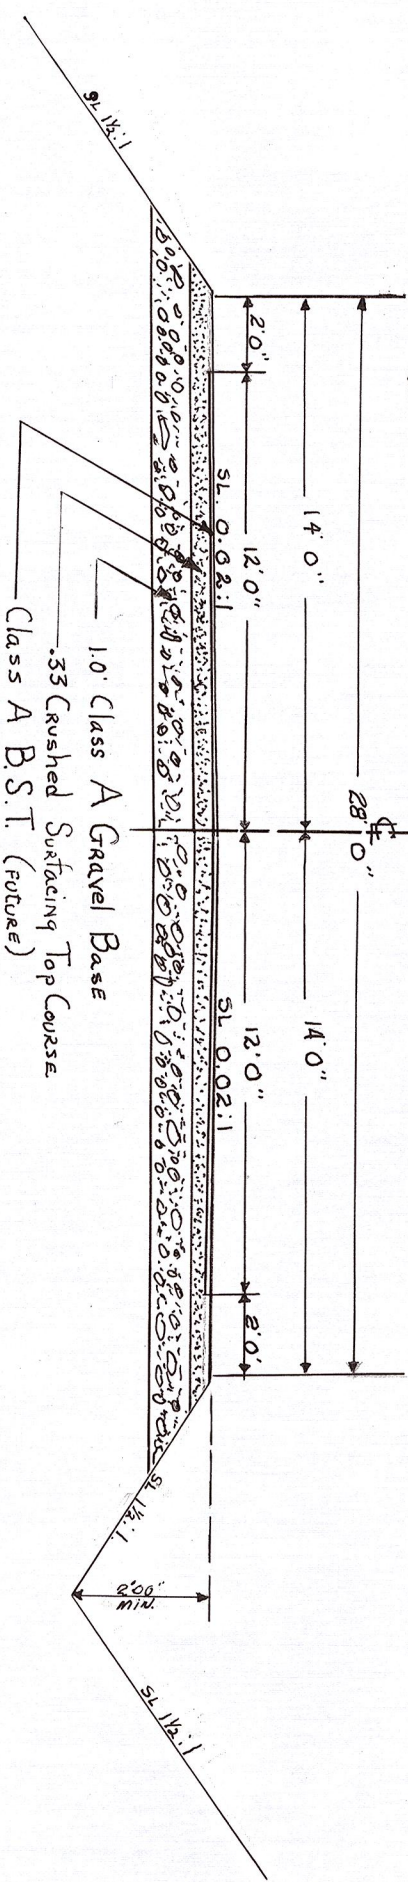 28' 0"
14' 0"
14' 0"
2'0"
12'0"
12'0"
2'0'
SL. 0.02:1
SL 0.02:1
SL 1½:1
SL 1½:1.
2'00"
MIN.
SL 1½:1
1.0' Class A Gravel Base
.33 Crushed Surfacing Top Course
Class A B.S.T. (FUTURE)